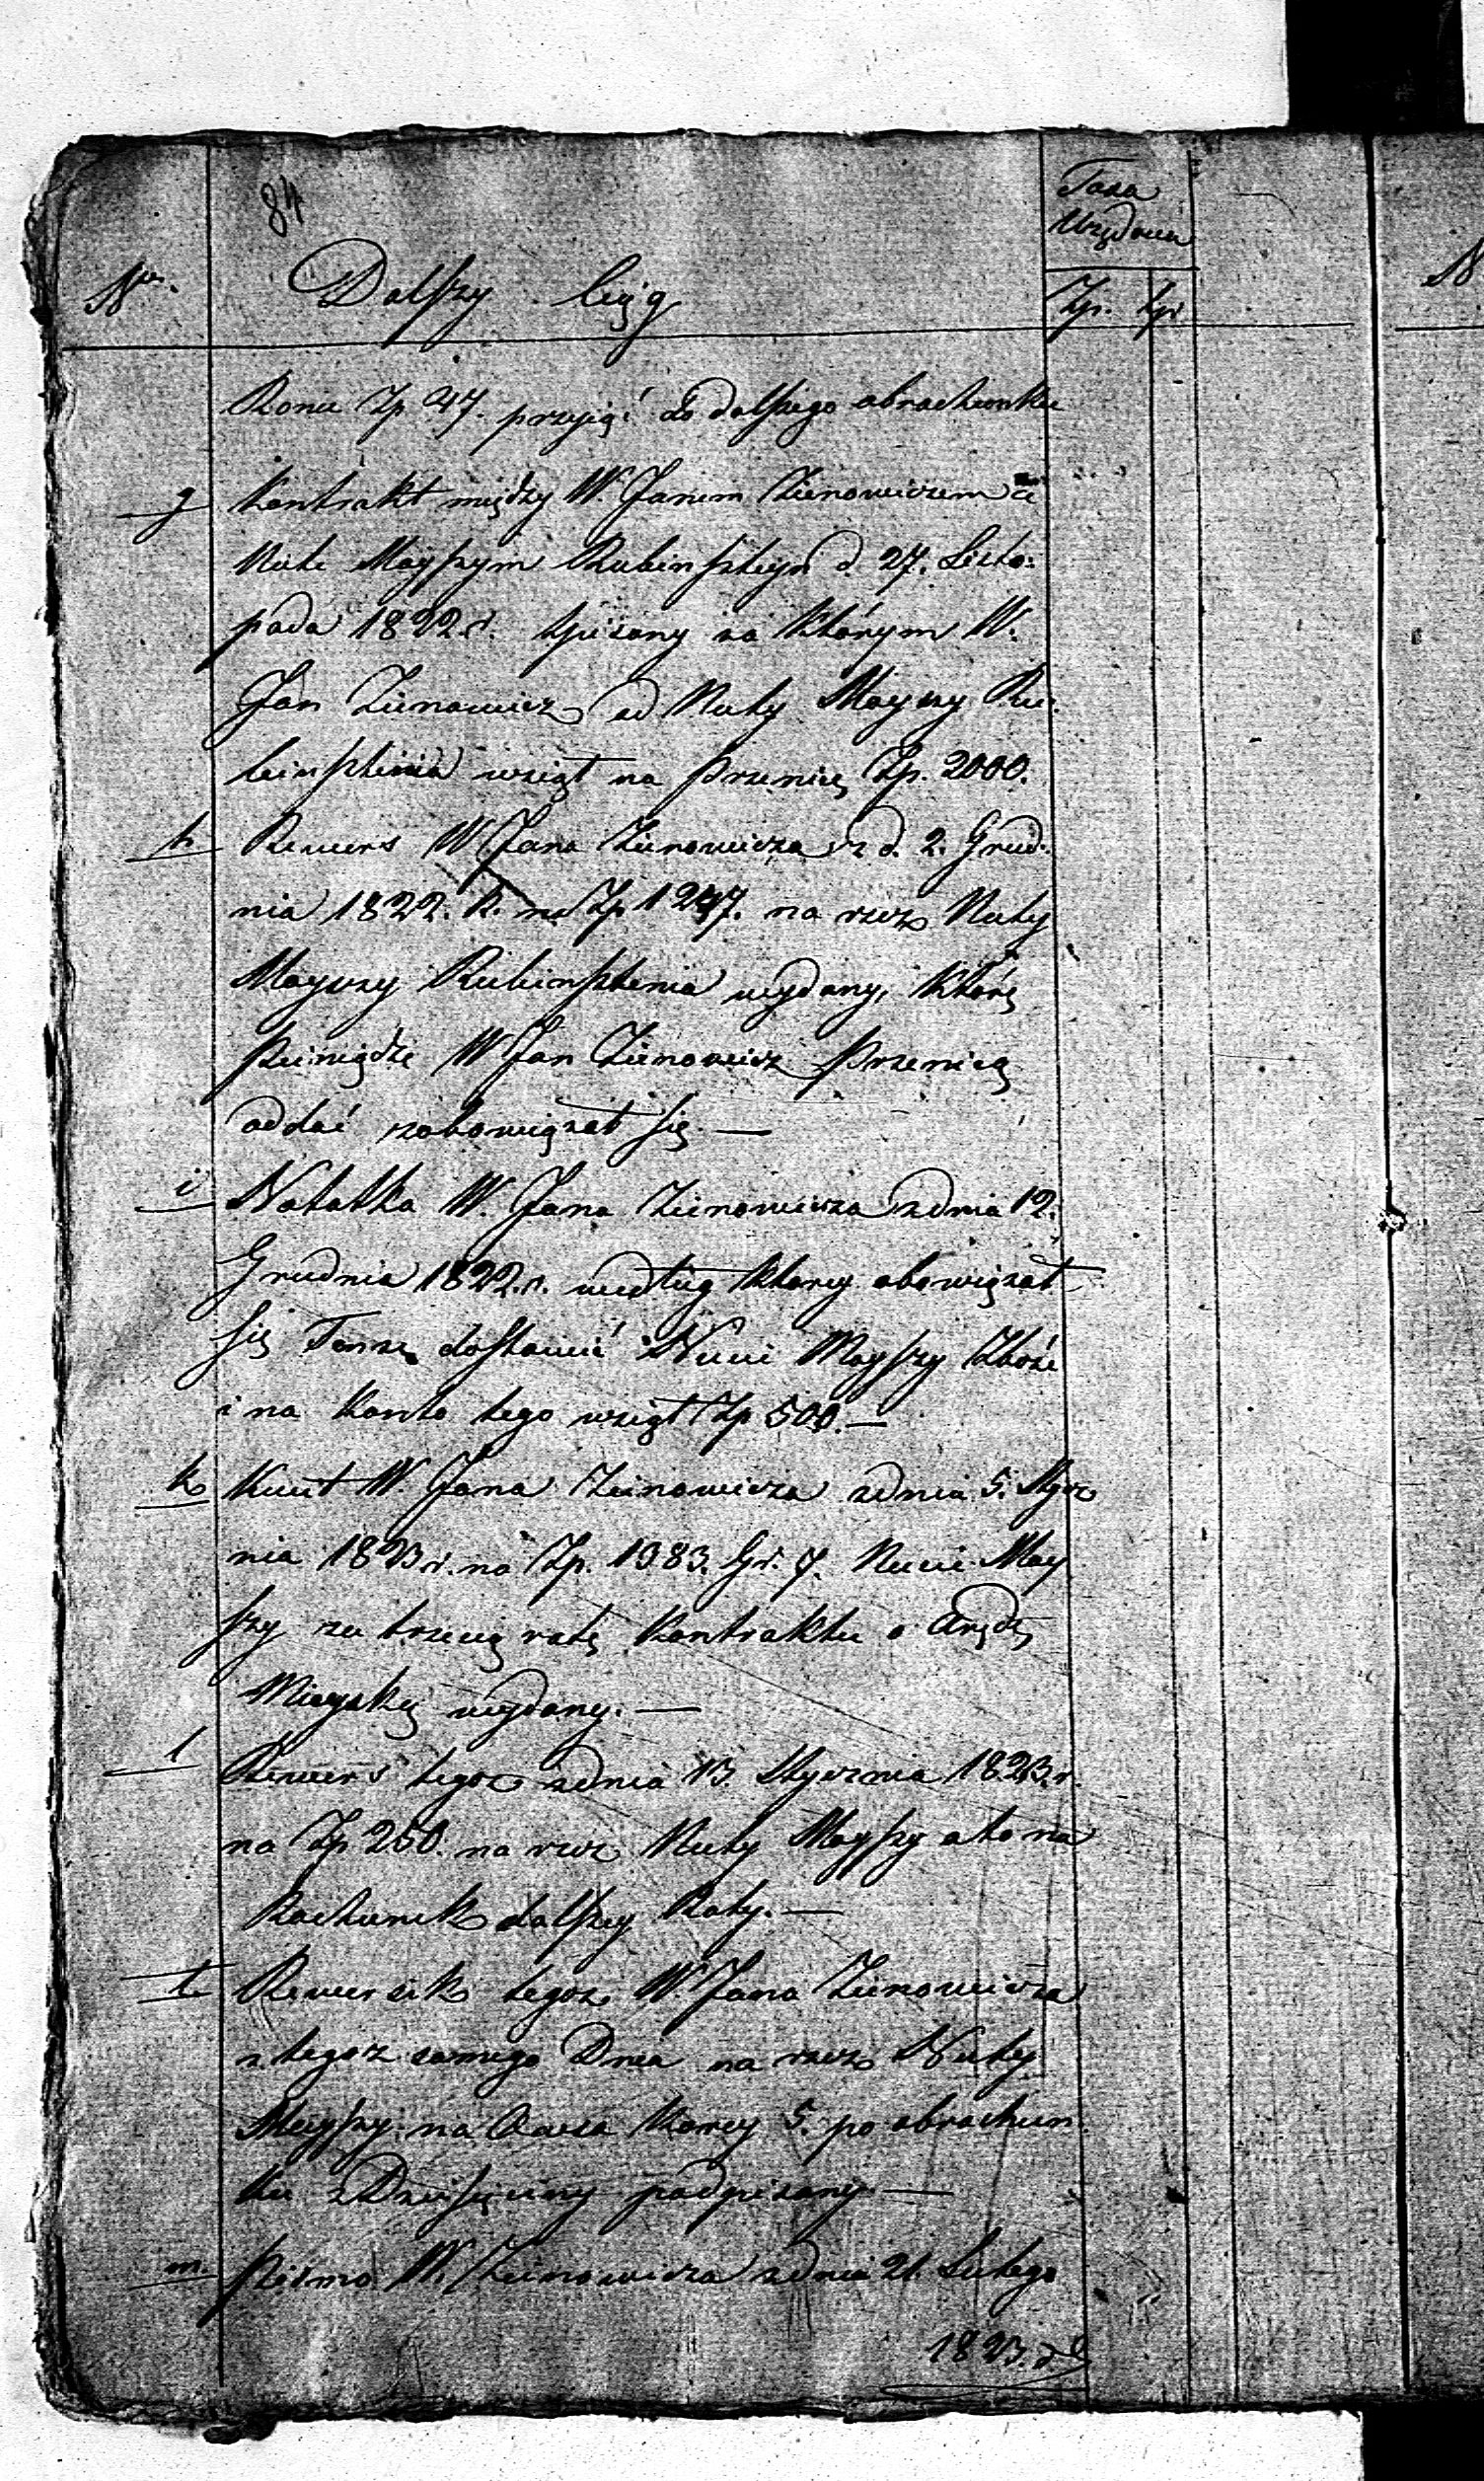 84
Taxa
Urzędowa
Nro. Dalszy Ciąg
Zp. gr
Konie Zp 47. przyjąć do dalszego obrachunku
g Kontrakt między W. Janem Zienowiczem a
Nute Mayszym Rubinszteyn d. 27. Listo-
pada 1822 r. spisany za którym W.
Jan Zienowicz od Nuty Mayszy Ru-
binszteina wziął na Przenicę Zp. 2000.
h Rewers W Jana Zienowicza z d. 2. Grud-
nia 1822. R. na Zp 1247. na rzecz Nuty
Mayszy Rubinszteina wydany, które
Pieniądze W Jan Zienowicz Przenicą
oddać zobowiązał się. —
i Notatka W. Jana Zienowicza z dnia 12.
Grudnia 1822. r. według którey obowiązał
się Tenże dostawić Nuci Mayszy Zboże
i na konto tego wziął Zp 500. —
k Kwit W. Jana Zienowicza z dnia 5. Stycz
nia 1823 r. na Zp. 1383. Gr. 7. Nucie May
szy za trzecią ratę Kontraktu o Arędę
Mieyską wydany. —
l Rewers tegoż z dnia 13. Stycznia 1823. r.
na Zp 250. na rzecz Nuty Mayszy a to na
Rachunek dalszey Raty. —
ł Rewersik tegoż W. Jana Zienowicza
z tegoż samego Dnia na rzecz Nuty
Mayszy na Owsa Korcy 5. po obrachun
ku z Dziesięciny podpisany —
m. Pismo W. Zienowicza z dnia 21. Lutego
1823. r